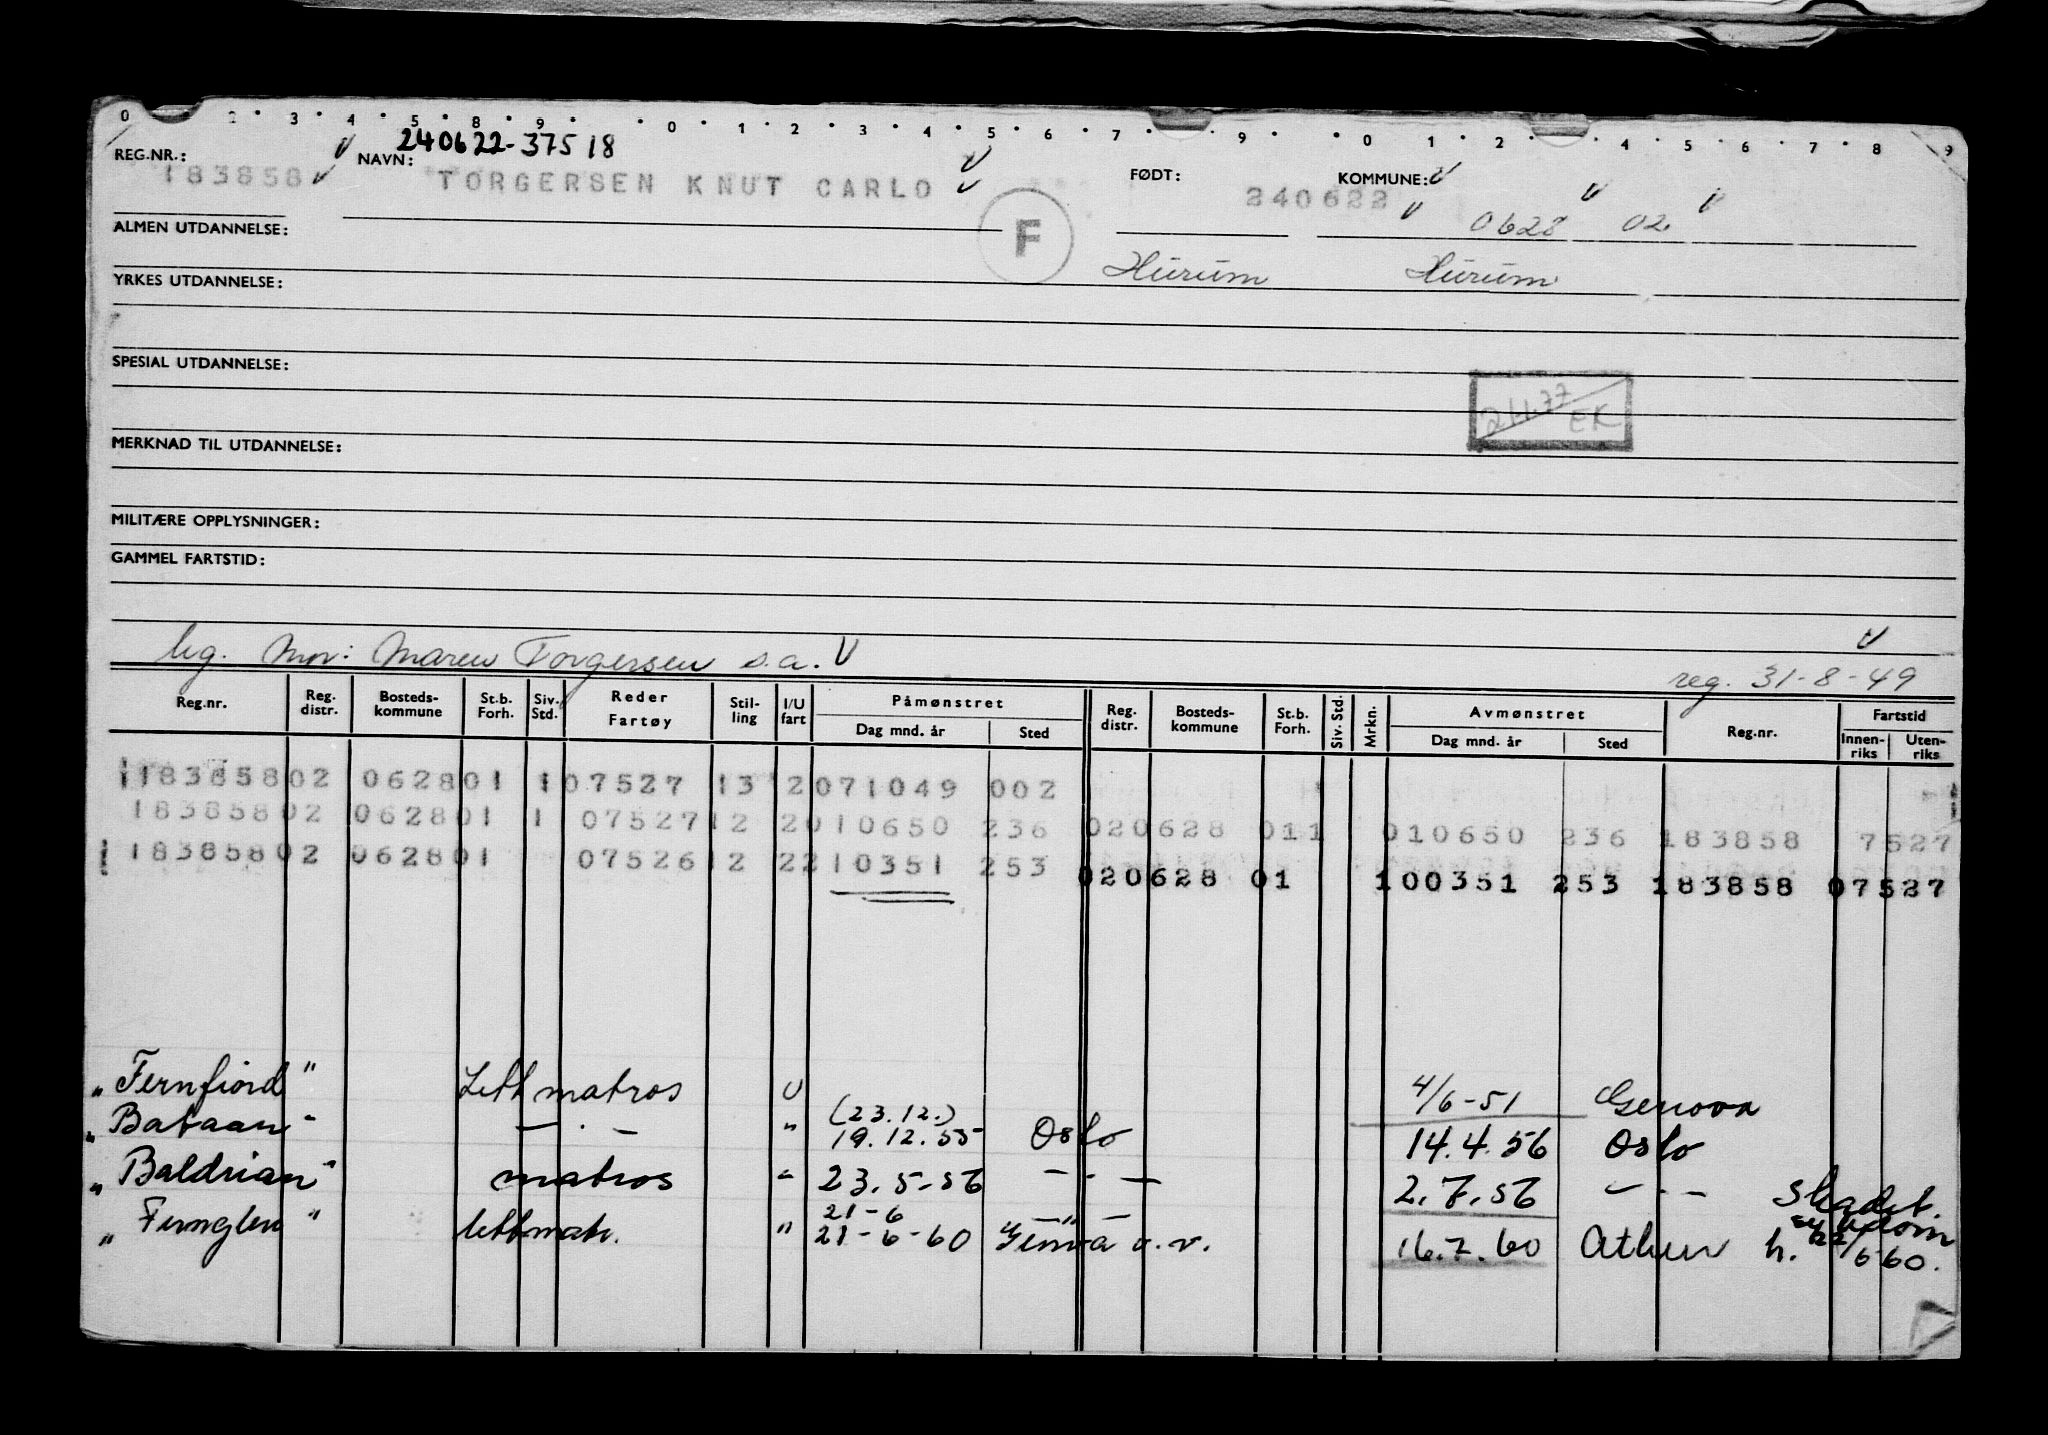 0 2 3 4 5 8 9 0 1 2 3 4 5 6 7 9 0 1 2 4 5 6 7 8 9
240622-37518
REG.NR.: NAVN: FØDT: KOMMUNE:
183858 TORGERSEN KNUT CARLO 240622 0628 02
F
ALMEN UTDANNELSE:
Hurum Hurum
YRKES UTDANNELSE:
SPESIAL UTDANNELSE:
EK
MERKNAD TIL UTDANNELSE:
MILITÆRE OPPLYSNINGER:
GAMMEL FARTSTID:
Mor: Maren Torgersen s.a. reg. 31-8-49
Reg.nr. Reg. distr. Bosteds-kommune St.b. Forh. Siv. Std. Reder Fartøy Stil-ling I/U fart Påmønstret Dag mnd. år Sted Reg. distr. Bosteds-kommune St.b. Forh. Siv. Std. Mrkn. Avmønstret Dag mnd. år Sted Reg.nr. Fartstid Innen-riks Uten-riks
18385802 062801 107527 13 2071049 002
18385802 062801 1 0752712 2010650 236 020628 011 010650 236 183858 7527
18385802 062801 0752612 2210351 253 020628 01 100351 253 183858 07527
"Fernfiord" Lettmatros U 4/6-51 Genova
"Bataan" — . — " (23.12.) 19.12.55 Oslo 14.4.56 Oslo
"Baldrian" matros " 23.5.56 — . — 2.7.56 — . — Skadet
"Fernglen" lettmatr. " 21-6 21-6-60 — " — Genova 16.7.60 Athen h. 6 60.